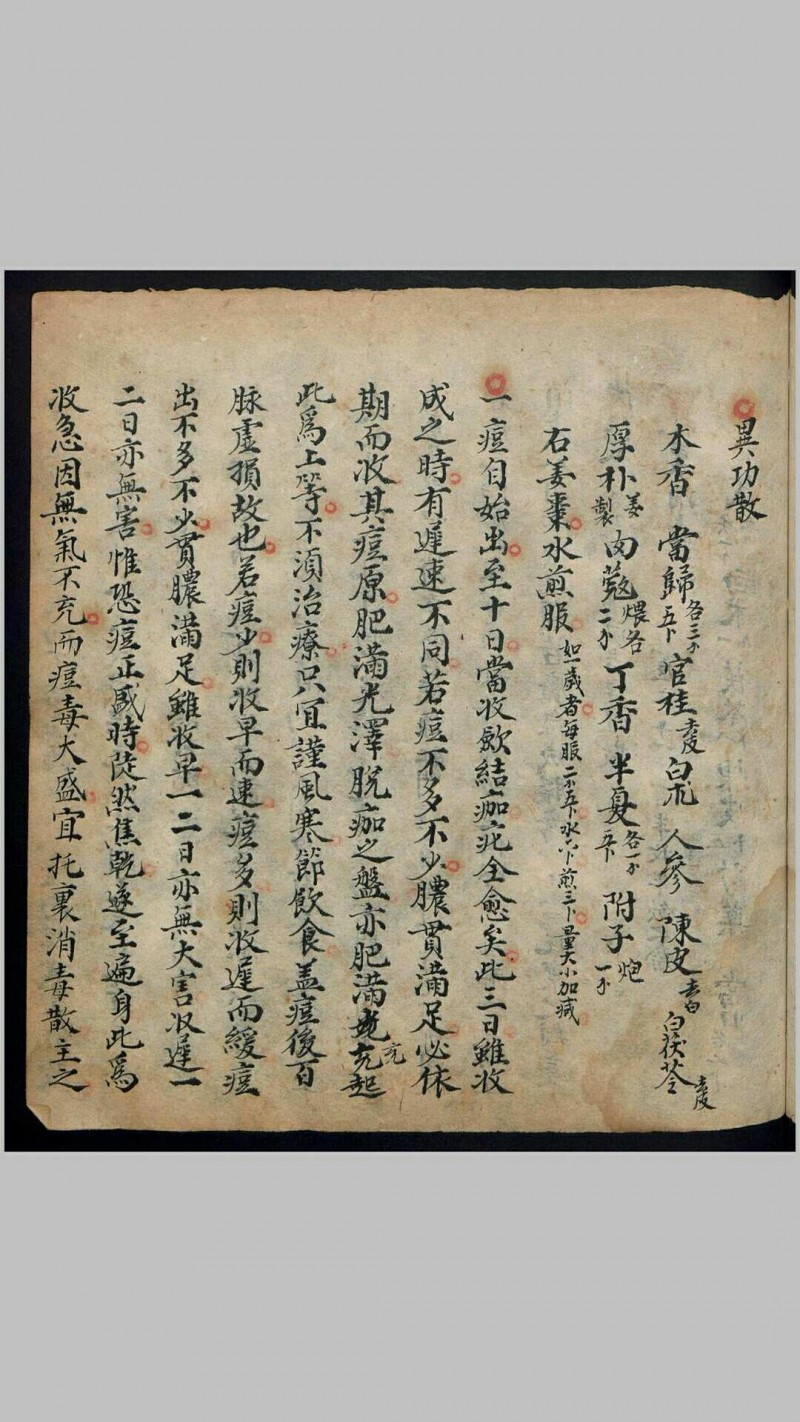 異功散
木香 當歸各三分五卜 官桂去皮 白朮 人參 陳皮去白 白茯苓去皮
厚朴姜製 肉蔲煨各二分 丁香 半夏各一分五卜 附子炮一分
右姜棗水煎服如一歲者每服二分五卜水六卜煎三卜量大小加減
一痘自始出至十日當收歛結痂疕全愈矣此三日雖收
成之時有遲速不同若痘不多不少膿貫滿足必依
期而收其痘原肥滿光澤脫痂之盤亦肥滿充起
此爲上等不須治療只宜謹風寒節飲食盖痘後百
脉虛損故也若痘少則收早而速痘多則收遲而緩痘
出不多不少貫膿滿足雖收早一二日亦無大害收遲一
二日亦無害惟恐痘正盛時陡然焦乾遂至遍身此爲
收急因無氣不充而痘毒大盛宜托裏消毒散主之